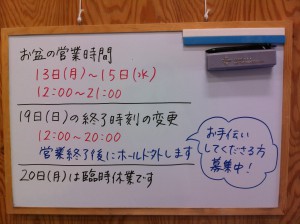 お盆の営業時間
13日(月)〜15日(水)
12:00〜21:00
19日(日)の終了時刻の変更
12:00〜20:00
営業終了後にホールド外します
20日(月)は臨時休業です
お手伝い
してくださる方
募集中!